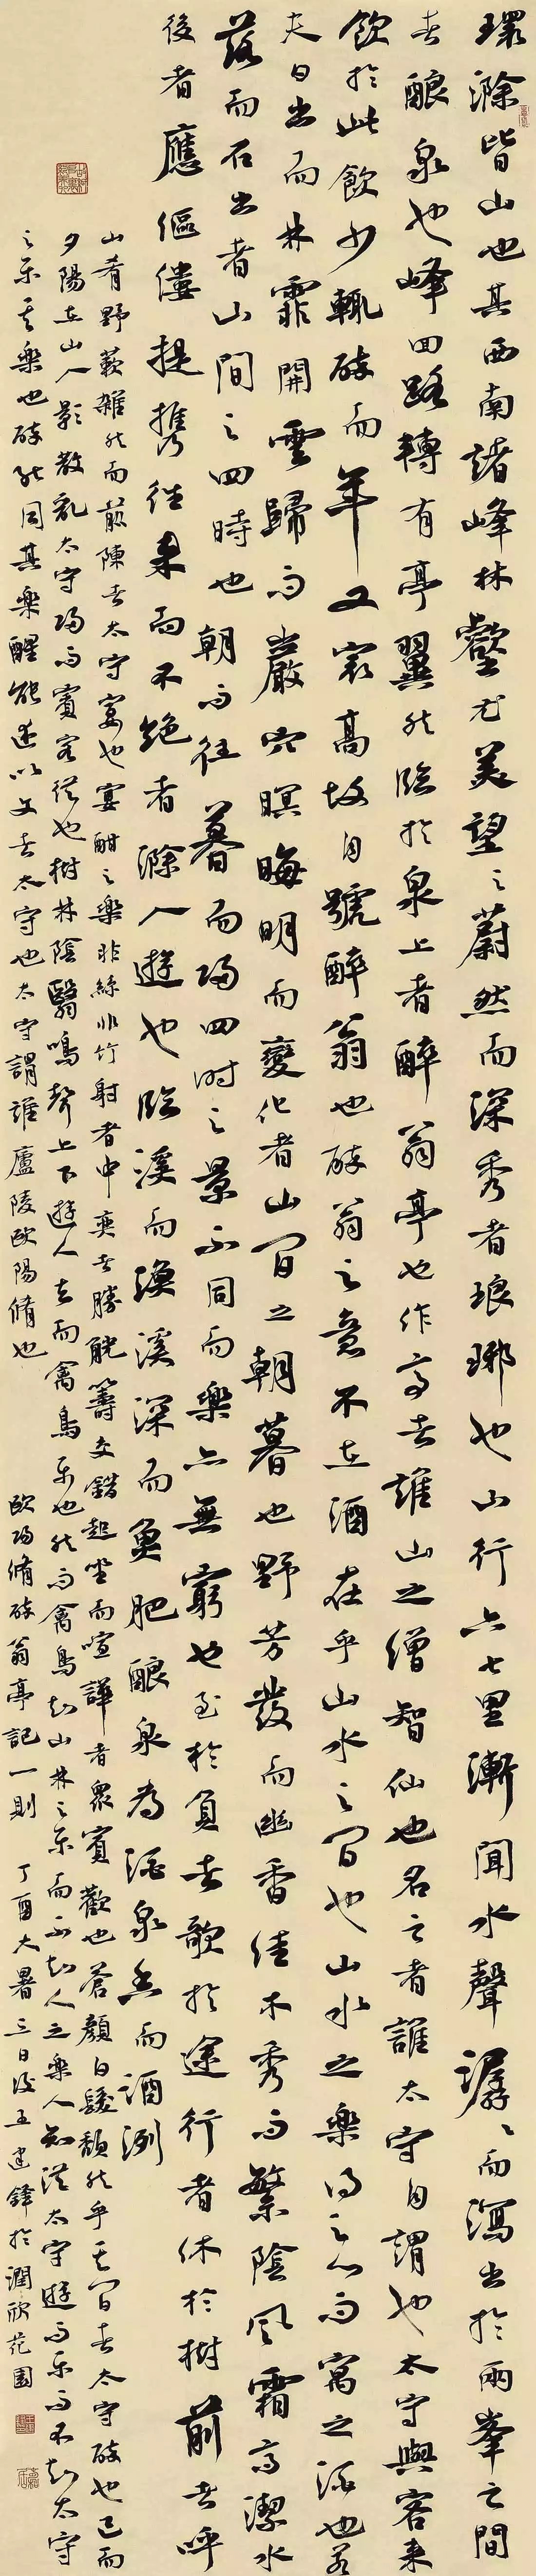 環滁皆山也其西南諸峰林壑尤美望之蔚然而深秀者琅琊也山行六七里漸聞水聲潺潺而瀉出於兩峯之間
者釀泉也峰回路轉有亭翼然臨於泉上者醉翁亭也作亭者誰山之僧智仙也名之者誰太守自謂也太守與客來
飲於此飲少輒醉而年又最高故自號醉翁也醉翁之意不在酒在乎山水之間也山水之樂得之心而寓之酒也若
夫日出而林霏開雲歸而巖穴暝晦明而變化者山間之朝暮也野芳發而幽香佳木秀而繁陰風霜高潔水
落而石出者山間之四時也朝而往暮而歸四時之景不同而樂亦無窮也至於負者歌於途行者休於樹前者呼
後者應傴僂提攜往來而不絕者滁人遊也臨溪而漁溪深而魚肥釀泉為酒泉香而酒洌
山肴野蔌雜然而前陳者太守宴也宴酣之樂非絲非竹射者中奕者勝觥籌交錯起坐而喧譁者衆賓歡也蒼顏白髮頹然乎其間者太守醉也已而
夕陽在山人影散亂太守歸而賓客從也樹林陰翳鳴聲上下遊人去而禽鳥樂也然而禽鳥知山林之樂而不知人之樂人知從太守遊而樂而不知太守
之樂其樂也醉能同其樂醒能述以文者太守也太守謂誰廬陵歐陽脩也 歐陽脩醉翁亭記一則 丁酉大暑三日後王建鋒於潤欣花園